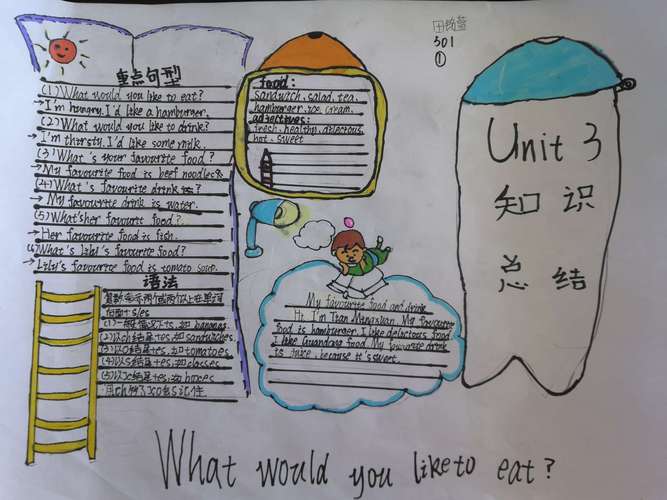 重点句型
(1) What would you like to eat?
→I'm hungry. I'd like a hamburger.
(2) What would you like to drink?
→I'm thirsty. I'd like some milk.
(3) What's your favourite food?
→My favourite food is beef noodles.
(4) What's favourite drink is?
→My favourite drink is water.
(5) What's her favourite food?
→Her favourite food is fish.
What's Lily's favourite food?
→Lily's favourite food is tomato soup.
语法
(1)一般情况下+s,如
(2)以ch结尾+es,如sandwiches
(3)以o结尾+es,如tomatoes
(4)以s结尾+es,如classes
(5)以x结尾+es,如boxes
food:
sandwich, salad, tea,
hamburger, ice cream,
adjectives:
fresh, healthy, delicious,
hot, sweet
501
①
Unit 3
知识
总结
My favourite food and drink
Hi, I'm Tian My favourite
food is hamburger. I like delicious food.
I like food. My favourite drink
is juice, because it's sweet.
What would you like to eat?